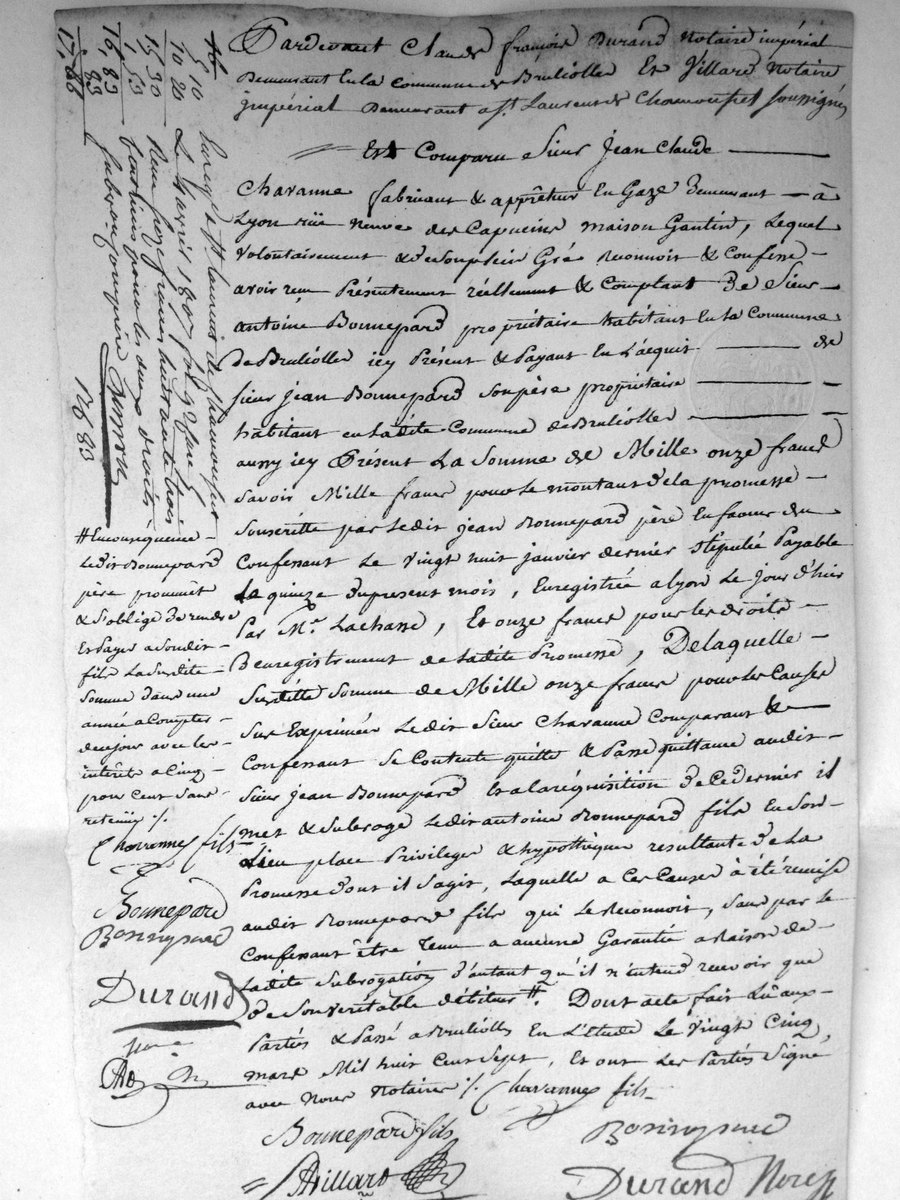 Pardevant Claude françois Durand Notaire impérial
Demeurant En la Commune de Brulïolle Et Villard Notaire
jmpérial Demeurant a St. Laurent de Chamousset soussignés
Est Comparu Sieur Jean Claude
Chavanne fabricant & apprêteur En Gaze Demeurant à
Lyon rüe Neuve des Capucins maison Gantin, Lequel
Volontairement & de son plein Gré Reconnoit & Confesse
avoir reçu Présentement réellement & Comptant De Sieur
antoine Bonnepard propriétaire habitant En La Commune
de Brulïolle icy Présent & Payant En L'acquit de
sieur jean Bonnepard son père propriétaire
habitant en ladite Commune de Brulïolle
aussy icy Présent La Somme de Mille onze francs
savoir Mille francs pour le montant de la promesse
Souscritte par Ledit jean Bonnepard père En faveur du
Confessant Le Vingt huit janvier dernier stipulée Payable
Le quinze du present mois, Enregistrée a lyon Le jour d'hier
Par Mr. Lachasse, Et onze francs pour les droits
D'enregistrement de Ladite Promesse, De laquelle
Susditte Somme de Mille onze francs pour les Causes
Sus Exprimées Ledit Sieur Chavanne Comparant &
Confessant se Contente quitte & Passe quittance audit
Sieur jean Bonnepard Et a la réquisition De Ce dernier il
met & Subroge Ledit antoine Bonnepard fils En Son
Lieu place Privilege & hypothèque resultant de La
Promesse dont il s'agit, Laquelle a Ces Causes à été remise
audit Bonnepard fils qui Le Reconnoit, Sans par le
Confessant être Tenu a aucune Garantie a Raison de
Ladite Subrogation d'autant qu'il n'entend recevoir que
de Son véritable débiteur #. Dont acte fait Lû aux
Parties & Passé a Brulïolle En L'Etude Le Vingt Cinq
mars Mil huit Cent Sept, Et ont Les Parties Signé
avec Nous Notaires /. Chavanne fils
Bonnepard fils
Bonnepard
Villard
Durand Nore
# En consequence
Ledit Bonnepard
père promet
& s'oblige De rendre
Et Payer a Son dit
fils La Susdite
Somme dans une
année a Compter
de ce jour avec les
intérêts a Cinq
pour Cent Sans
retenüe /.
Chavanne fils
Bonnepard
Bonnepard
Durand
Enregé a St. Laurent de Chamousset
Le 4 avril 1807
Reçu
pour les deux droits
15 10
10 20
15 30
1 53
16, 83
83
17, 86
16 83